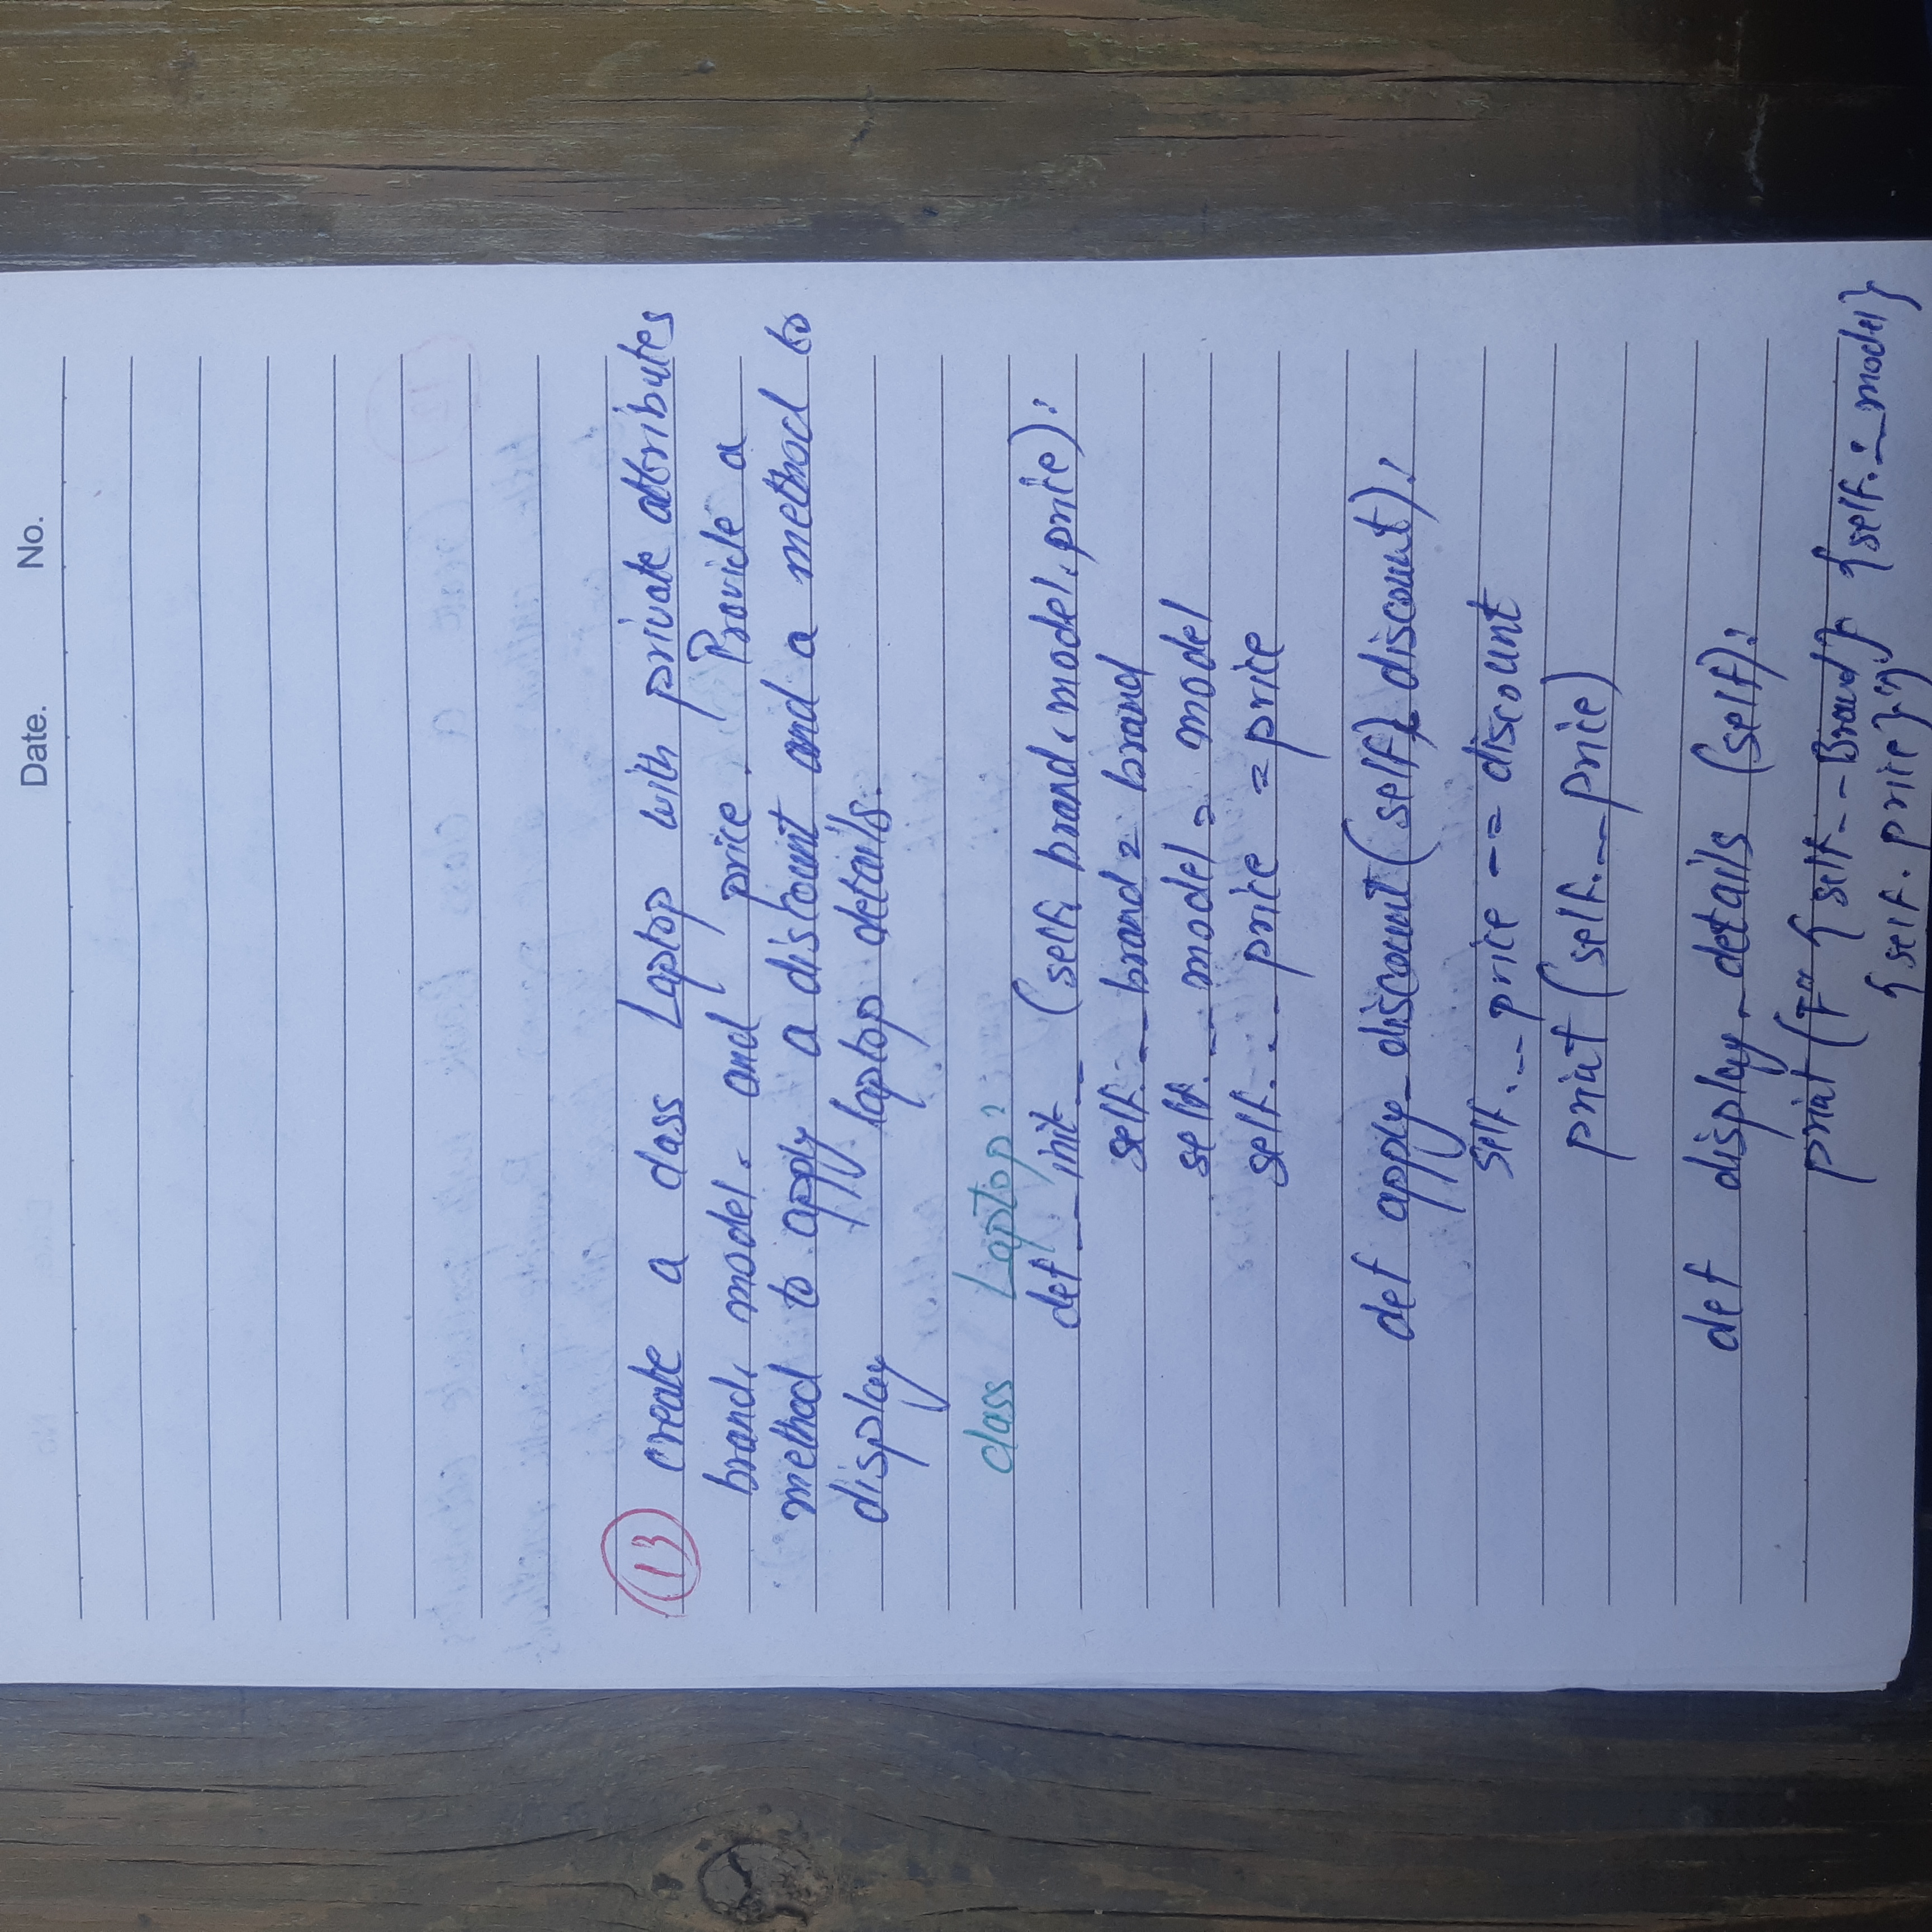 Date. No.
13 create a class Laptop with private attributes
brand, model, and price. Provide a
method to apply a discount and a method to
display laptop details.
class Laptop:
def __init__ (self, brand, model, price):
self.__brand = brand
self.__model = model
self.__price = price
def apply_discount(self, discount):
self.__price -= discount
print (self.__price)
def display_details (self):
print (f" {self._Brand} {self.__model}
{self.price}")